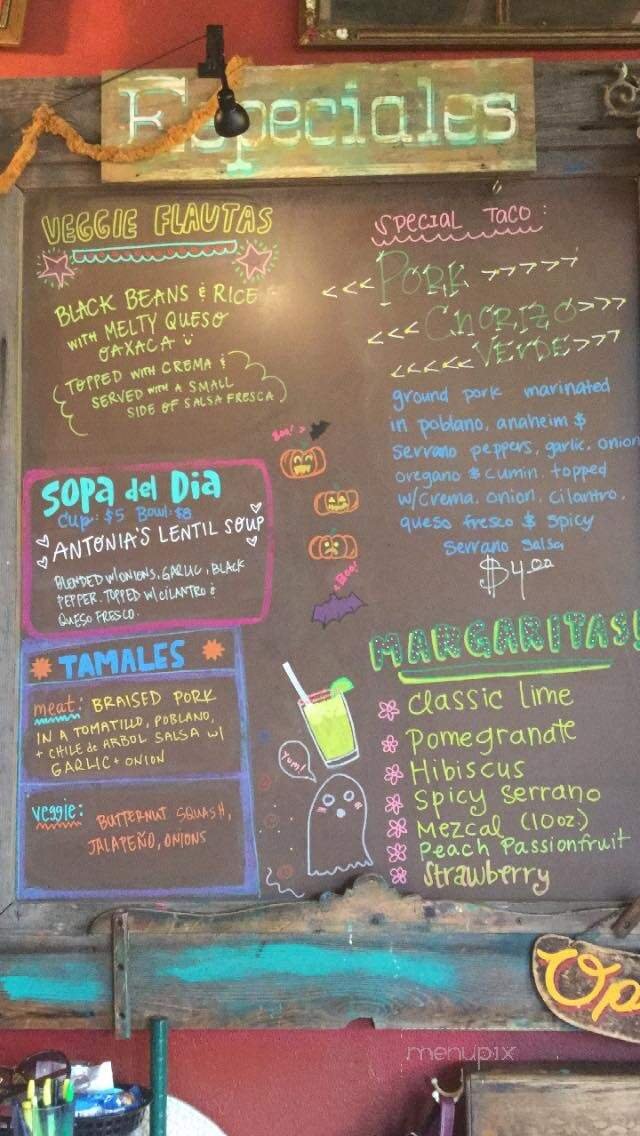 Especiales
VEGGIE FLAUTAS
BLACK BEANS & RICE
WITH MELTY QUESO
OAXACA
(TOPPED WITH CREMA &
SERVED WITH A SMALL
SIDE OF SALSA FRESCA)
SPECIAL TACO:
<<< PORK >>>>>>
<<< CHORIZO >>>
<<<<< VERDE >>>
ground pork marinated
in poblano, anaheim &
serrano peppers, garlic, onion
oregano & cumin. topped
w/crema, onion, cilantro,
queso fresco & spicy
serrano salsa
$4.00
Boo!
Boo!
SOPA del Dia
Cup: $5 Bowl: $8
ANTONIA'S LENTIL SOUP
BLENDED W/ONIONS, GARLIC, BLACK
PEPPER. TOPPED W/CILANTRO &
QUESO FRESCO.
TAMALES
meat: BRAISED PORK
IN A TOMATILLO, POBLANO,
+ CHILE de ARBOL SALSA W/
GARLIC + ONION
veggie: BUTTERNUT SQUASH,
JALAPEÑO, ONIONS
Yum!
MARGARITAS!
Classic lime
Pomegranate
Hibiscus
Spicy Serrano
Mezcal (10oz)
Peach Passionfruit
Strawberry
Op
menupix